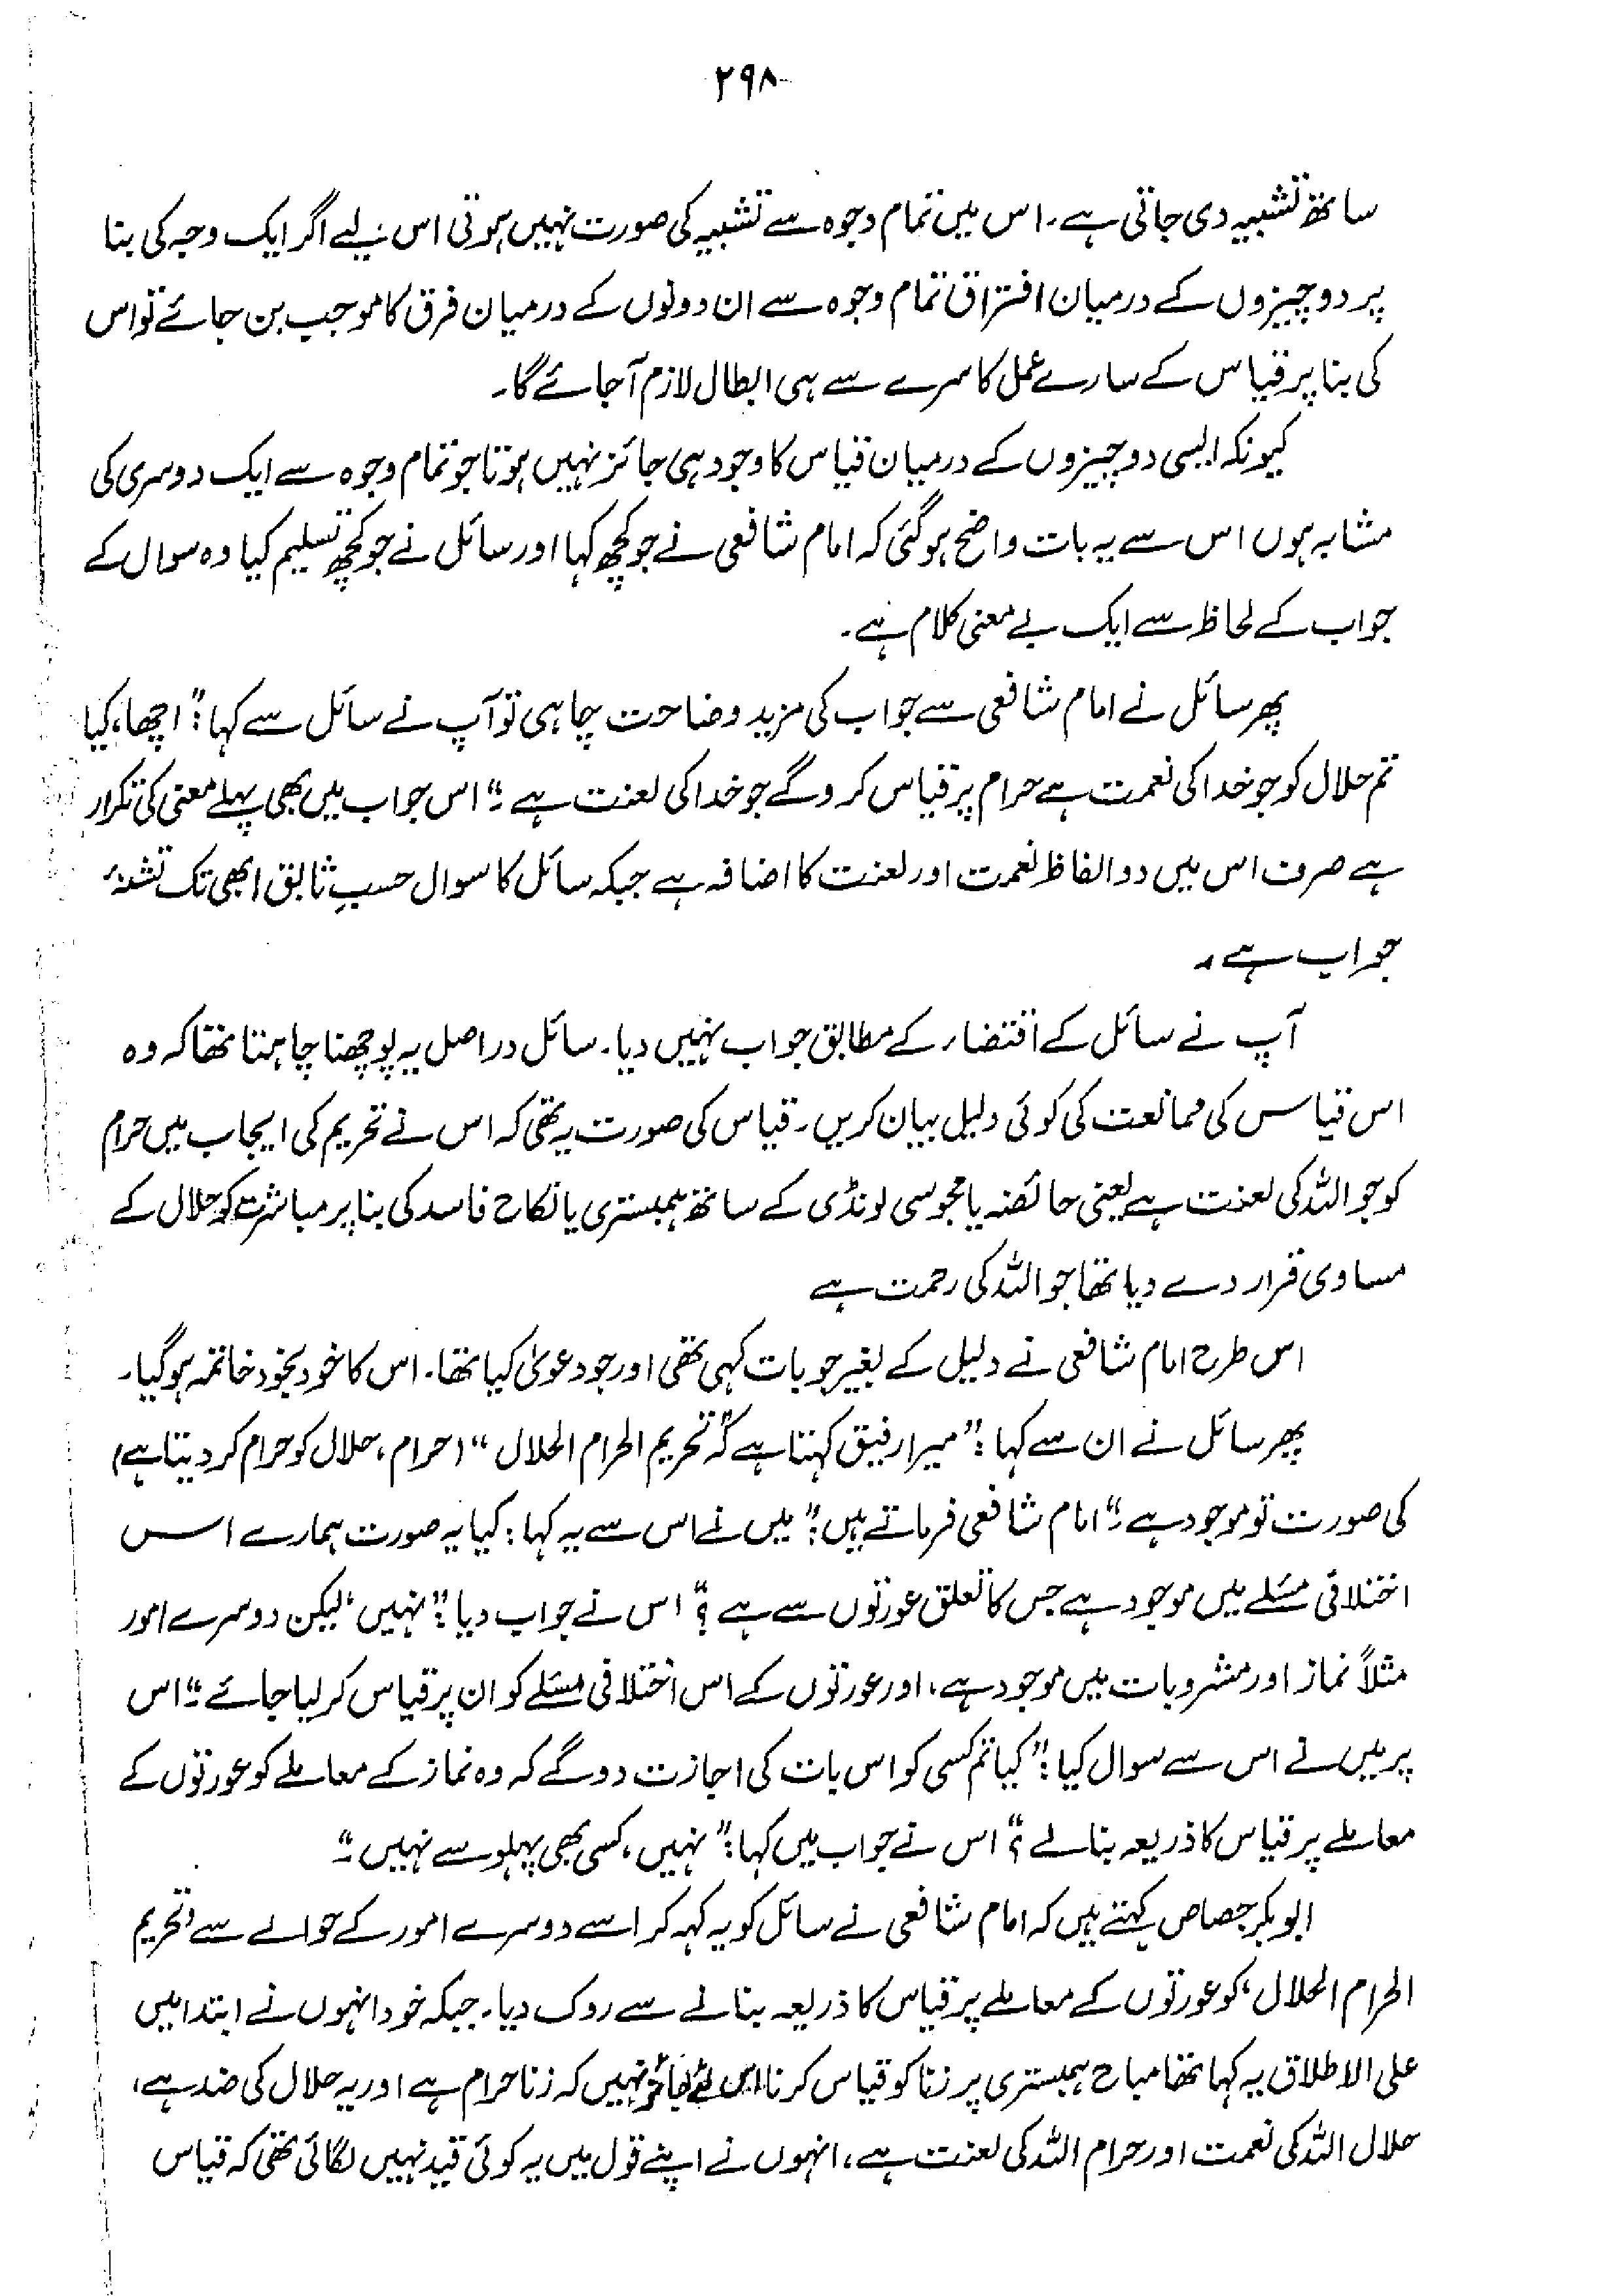 ۲۹۸
ساتھ تشبیہ دی جاتی ہے۔ اس میں تمام وجوہ سے تشبیہ کی صورت نہیں ہوتی اس لیے اگر ایک وجہ کی بنا
پر دو چیزوں کے درمیان افتراق تمام وجوہ سے ان دونوں کے درمیان فرق کا موجب بن جائے تو اس
کی بنا پر قیاس کے سارے عمل کا سرے سے ہی ابطال لازم آجائے گا۔
کیونکہ ایسی دو چیزوں کے درمیان قیاس کا وجود ہی جائز نہیں ہوتا جو تمام وجوہ سے ایک دوسری کی
مشابہ ہوں اس سے یہ بات واضح ہو گئی کہ امام شافعی نے جو کچھ کہا اور سائل نے جو کچھ تسلیم کیا وہ سوال کے
جواب کے لحاظ سے ایک بے معنی کلام ہے۔
پھر سائل نے امام شافعی سے جواب کی مزید وضاحت چاہی تو آپ نے سائل سے کہا:" اچھا، کیا
تم حلال کو جو خدا کی نعمت ہے حرام پر قیاس کرو گے جو خدا کی لعنت ہے۔" اس جواب میں بھی پہلے معنی کی تکرار
ہے صرف اس میں دو الفاظ نعمت اور لعنت کا اضافہ ہے جبکہ سائل کا سوال حسبِ ثالق ابھی تک تشنۂ
جواب ہے۔
آپ نے سائل کے اقتضاء کے مطابق جواب نہیں دیا۔ سائل دراصل یہ پوچھنا چاہتا تھا کہ وہ
اس قیاس کی ممانعت کی کوئی دلیل بیان کریں۔ قیاس کی صورت یہ تھی کہ اس نے تحریم کی ایجاب میں حرام
کو جو اللہ کی لعنت ہے یعنی حائضہ یا مجوسی لونڈی کے ساتھ ہمبستری یا نکاح فاسد کی بنا پر مباشرت کو حلال کے
مساوی قرار دے دیا تھا جو اللہ کی رحمت ہے
اس طرح امام شافعی نے دلیل کے بغیر جو بات کہی تھی اور جو دعویٰ کیا تھا۔ اس کا خود بخود خاتمہ ہو گیا۔
پھر سائل نے ان سے کہا:" میرا رفیق کہتا ہے کہ "تحریم الحرام الحلال" (حرام، حلال کو حرام کر دیتا ہے)
کی صورت تو موجود ہے۔" امام شافعی فرماتے ہیں:" میں نے اس سے یہ کہا: کیا یہ صورت ہمارے اس
اختلافی مسئلے میں موجود ہے جس کا تعلق عورتوں سے ہے؟" اس نے جواب دیا:" نہیں، لیکن دوسرے امور
مثلاً نماز اور مشروبات میں موجود ہے، اور عورتوں کے اس اختلافی مسئلے کو ان پر قیاس کر لیا جائے۔" اس
پر میں نے اس سے سوال کیا:" کیا تم کسی کو اس بات کی اجازت دو گے کہ وہ نماز کے معاملے کو عورتوں کے
معاملے پر قیاس کا ذریعہ بنا لے؟" اس نے جواب میں کہا:" نہیں، کسی بھی پہلو سے نہیں۔"
ابوبکر جصاص کہتے ہیں کہ امام شافعی نے سائل کو یہ کہہ کر اسے دوسرے امور کے حوالے سے 'تحریم
الحرام الحلال' کو عورتوں کے معاملے پر قیاس کا ذریعہ بنانے سے روک دیا۔ جبکہ خود انہوں نے ابتدا میں
علی الاطلاق یہ کہا تھا مباح ہمبستری پر زنا کو قیاس کرنا اس لئے جائز نہیں کہ زنا حرام ہے اور یہ حلال کی ضد ہے،
حلال اللہ کی نعمت اور حرام اللہ کی لعنت ہے، انہوں نے اپنے قول میں یہ کوئی قید نہیں لگائی تھی کہ قیاس